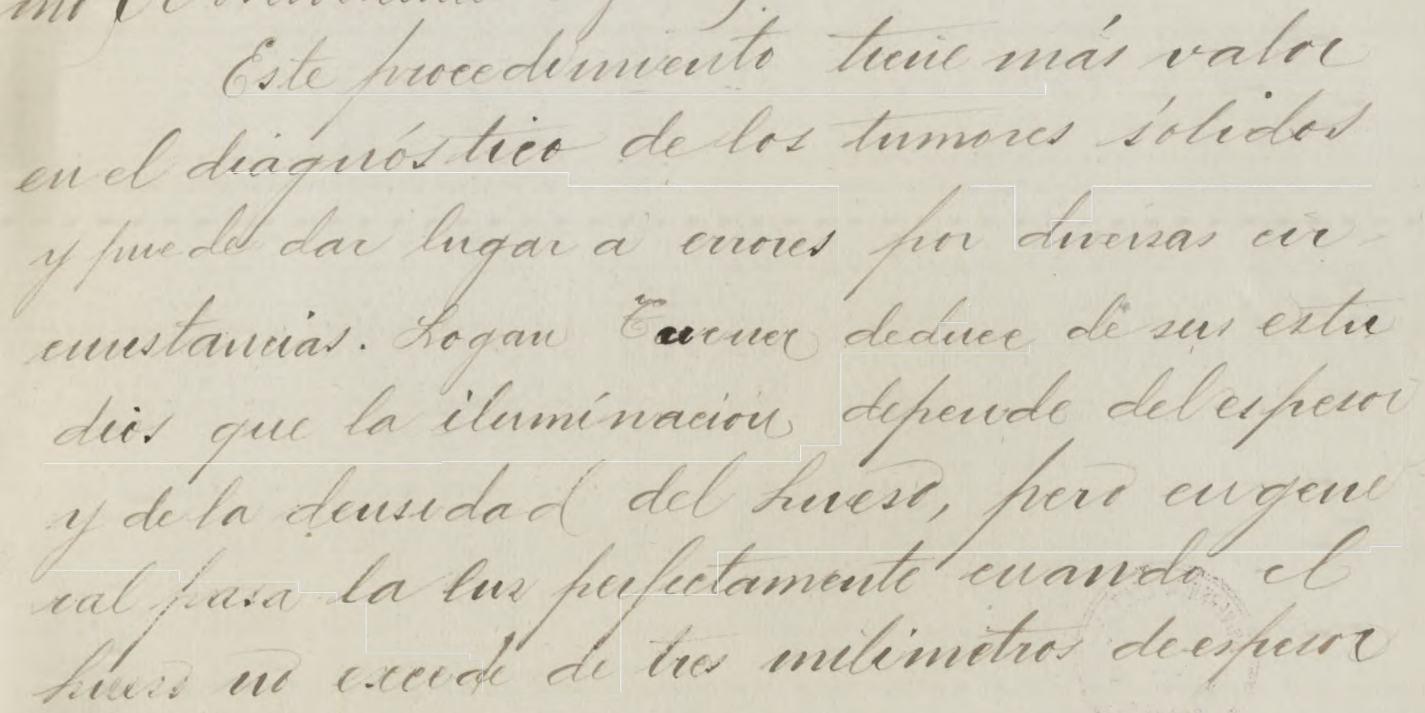 Este procedimiento tiene más valor
en el diagnóstico de los tumores sólidos
y puede dar lugar a errores por diversas cir-
cunstancias. Logan Turner deduce de sus estu
dios que la iluminación depende del espesor
y de la densidad del hueso, pero en gene
ral pasa la luz perfectamente cuando el
hueso no excede de tres milímetros de espesor